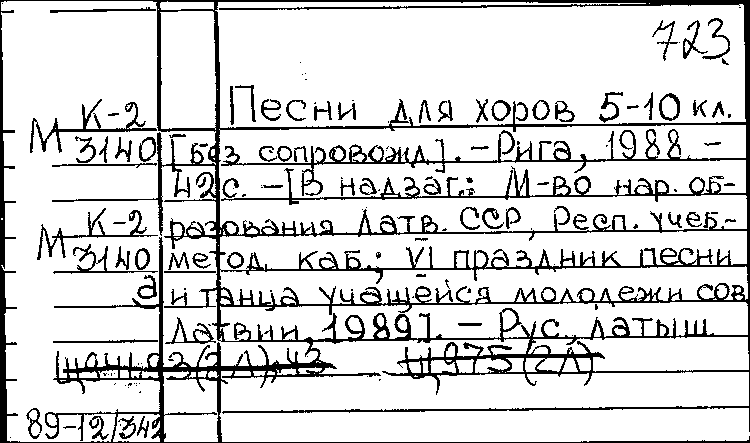 723
К-2 Песни для хоров 5-10 кл.
М 3140 [без сопровожд]. - Рига, 1988. -
42 с. - [В надзаг.: М-во нар. об-
К-2 разования Латв. ССР, Респ. учеб.-
М 3140 метод. каб.; VI праздник песни
а и танца учащейся молодежи сов
Латвии, 1989]. - Рус., латыш.
Щ941.93(2Л);43 Щ975(2Л)
89-12/342